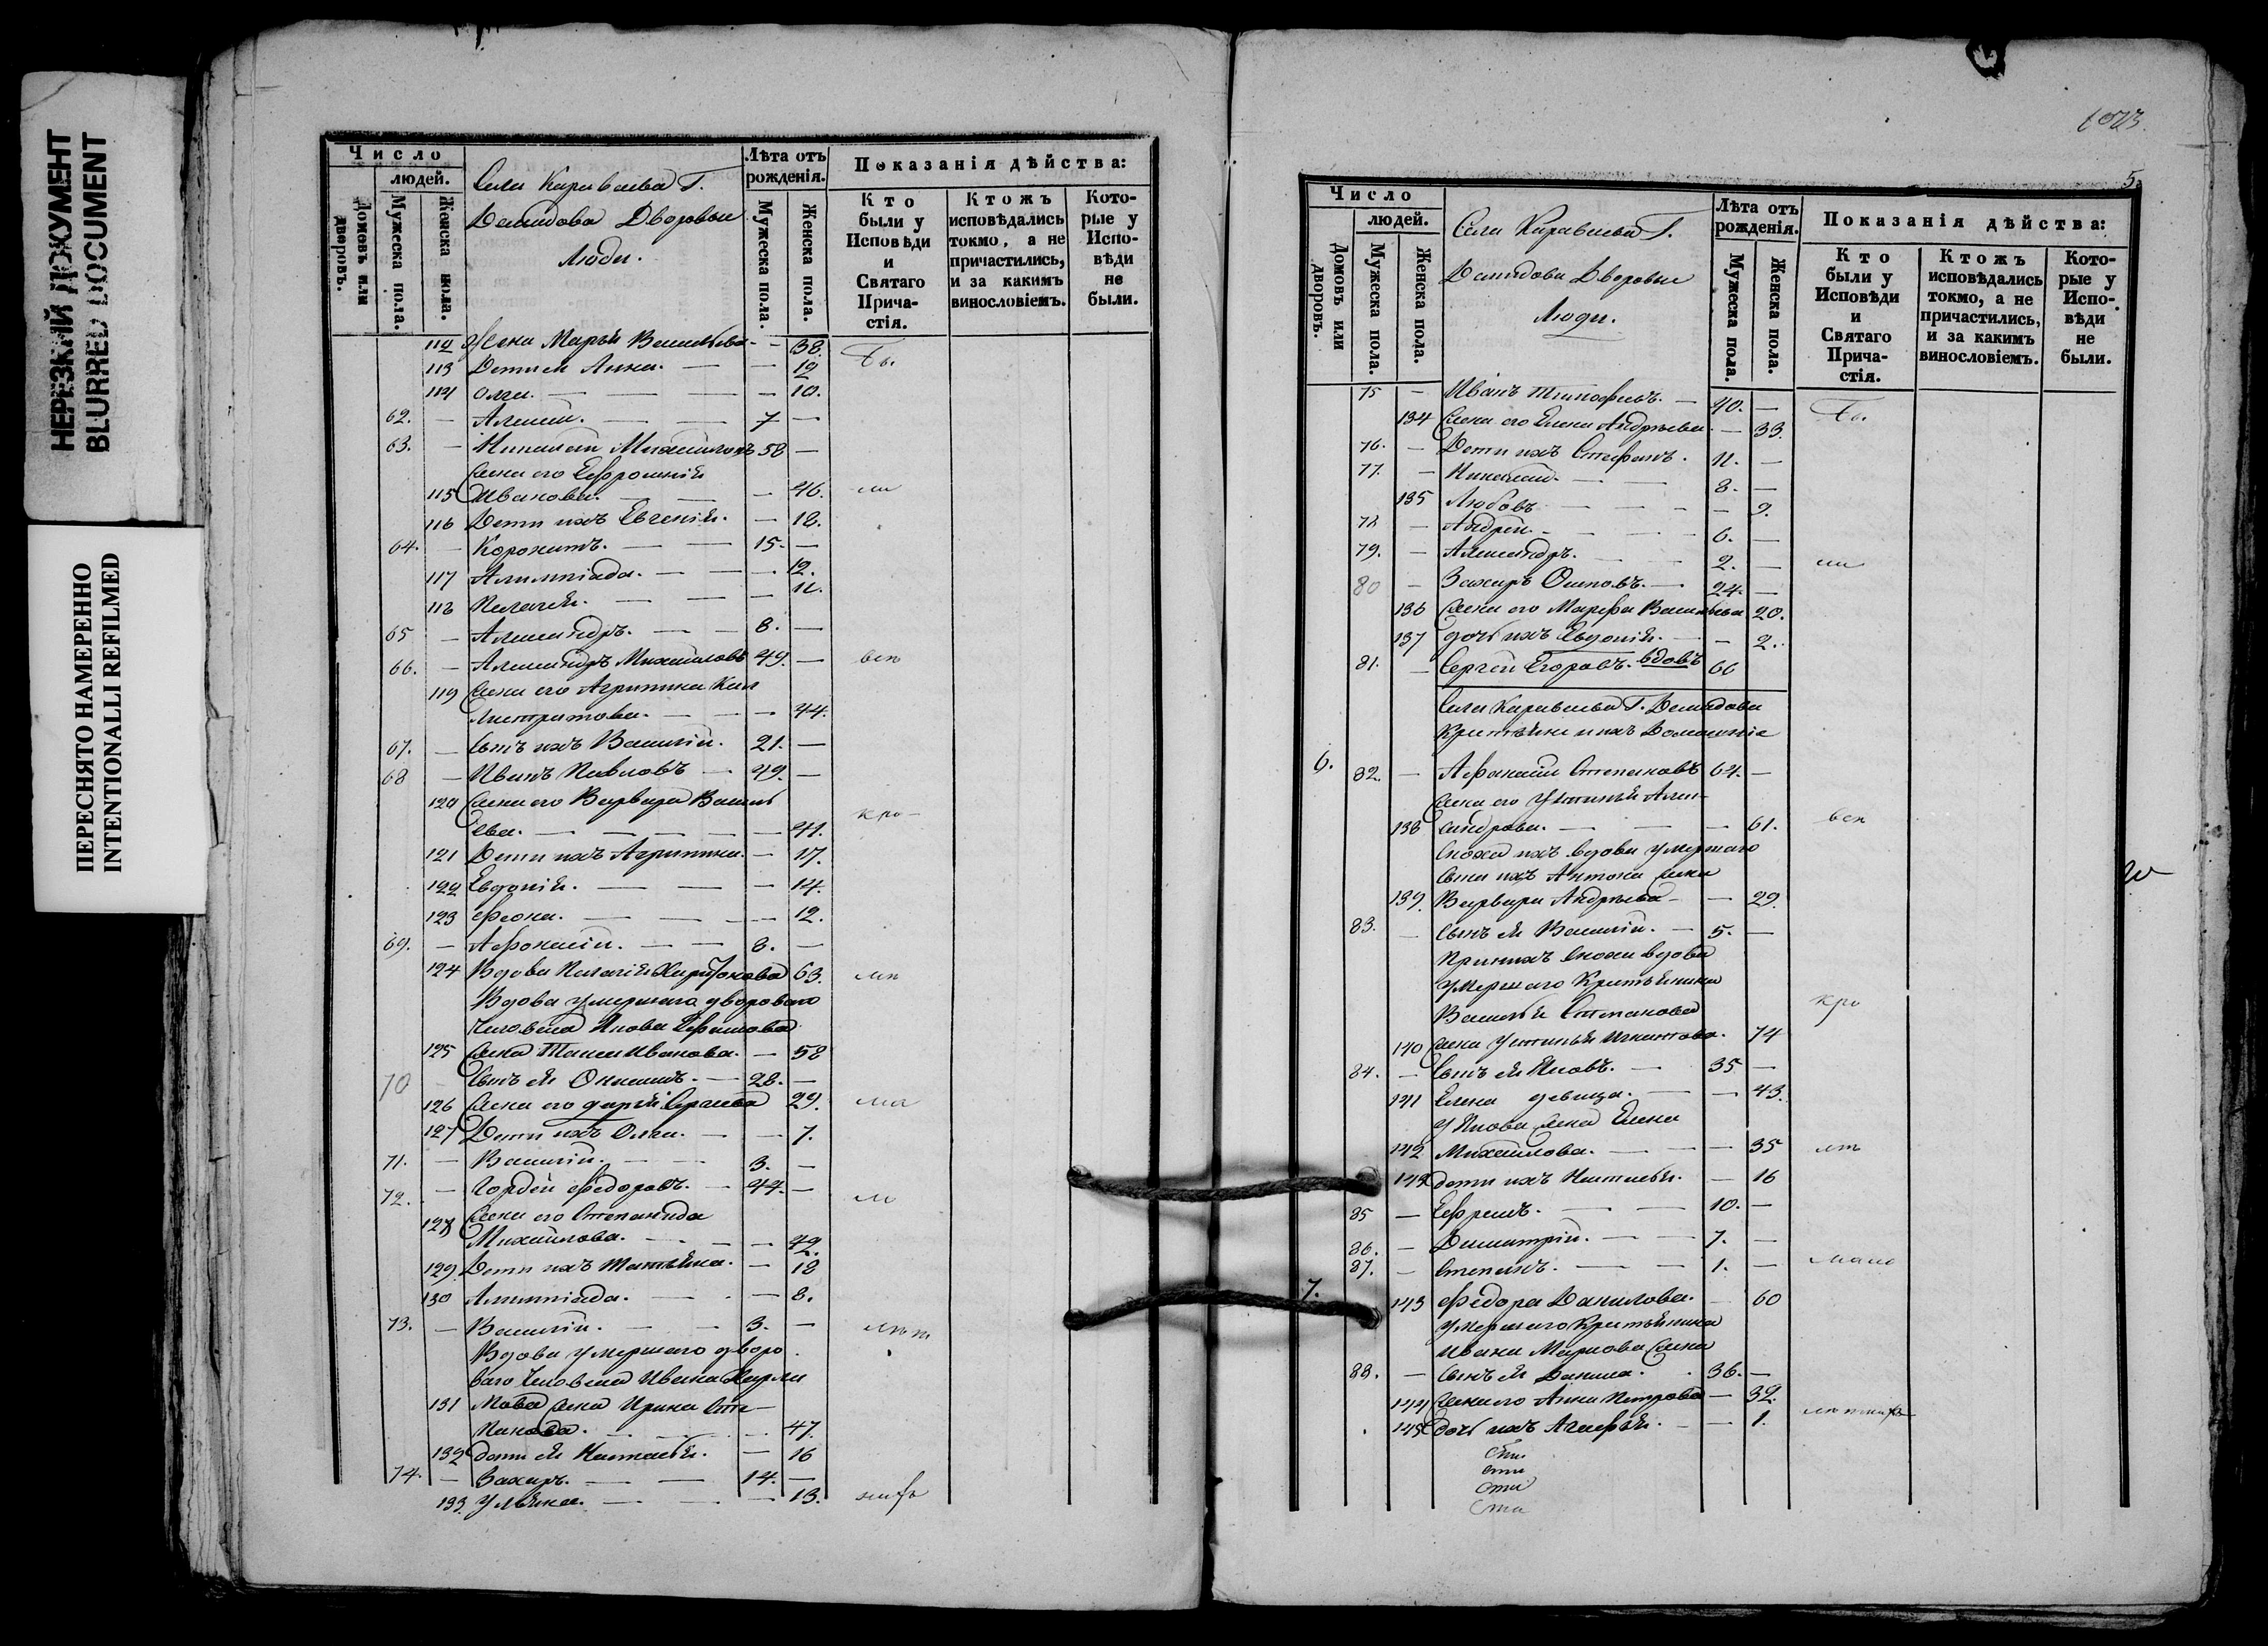 НЕРЕЗКИЙ ДОКУМЕНТ
BLURRED DOCUMENT
ПЕРЕСНЯТО НАМЕРЕННО
INTENTIONALLI REFILMED
Число
людей.
Домовъ или дворовъ.
Мужеска пола.
Женска пола.
Села Караваева Г.
Демидова Дворовые
Люди.
Лѣта отъ рожденія.
Мужеска пола.
Женска пола.
Показанія дѣйства:
Кто были у Исповѣди и Святаго Причастія.
Ктожъ исповѣдались токмо, а не причастились, и за какимъ винословіемъ.
Которые у Исповѣди не были.
112 Жена Марья Васильева - - 38. Бы.
113 Дети ея Анна. — — 12
114 Олга. — — — 10.
62. — Алексей. — 7 —
63. — Николай Михайловъ 58 —
Жена его Ефросинія
115 Иванова. — — 46. ли
116 Дети ихъ Евгенія. — 18.
64. — 15. —
117 Алимпіада. — — 12.
118 Пелагея. — — 11.
65 — Александръ. — — 8. —
66. — Александръ Михайловъ 49. — всѣ
119 Жена его Агрипина Кал
листратова. — — 44.
67. — Сынъ ихъ Василій. 21. —
68 — Иванъ Павловъ — 49. —
120 Жена его Варвара Василь
ева. — — — 41. кро-
121 Дети ихъ Агрипина. — 17.
122 Евдокія. — — 14.
123 Феона. — — 12.
69. — Афонасій. — — 8. —
124 Вдова Пелагія Харитонова 63. мѣ
Вдова умершаго двороваго
Человека Якова Ефимова
125 Жена Таисія Иванова. — 58
70 — Сынъ ея Онисимъ. — 28. —
126 Жена его Дарья Сергеева 29. ма
127 Дети ихъ Олга. — — 7.
71. — Василій. — 3. —
72. — Гордей Федоровъ. — 44. — ло
128 Жена его Степанида
Михайлова. — — 42.
129. Дети ихъ Татьяна. — 18
130 Алимпіада. — — 8.
73. — Василій. — 3. — лѣт
Вдова умершаго дворо
ваго Человека Ивана Харла
131 мова Жена Ирина Сте-
панова. — 47.
132 Дети ея Настасья. — 16
74. — Захаръ. — 14. —
133. Ульяна. — — 13. нихъ
1023.
5.
Число
людей.
Домовъ или дворовъ.
Мужеска пола.
Женска пола.
Села Караваева Г.
Демидова Дворовые
Люди.
Лѣта отъ рожденія.
Мужеска пола.
Женска пола.
Показанія дѣйства:
Кто были у Исповѣди и Святаго Причастія.
Ктожъ исповѣдались токмо, а не причастились, и за какимъ винословіемъ.
Которые у Исповѣди не были.
75 — Иванъ Тимофеевъ. — 40. — Бы.
134 Жена его Елена Андреева. — 33.
76. — Дети ихъ Стефанъ. 11. —
77. — Николай. — 8. —
135 Любовь — 9.
78 — Андрей. — 6. —
79. — Александръ. 2. — ли
80 — Захаръ Осиповъ. — 24. —
136 Жена его Марфа Васильева 20.
137 Дочь ихъ Евдокія. — — 2.
81. — Сергей Егоровъ. вдовъ 66
Села Караваева Г. Демидова
Крестьяне и ихъ Домашніе
6. 82. — Афанасій Степановъ 64. —
Жена его Устинья Алек-
138 сандрова. — — 61. всѣ
Сноха ихъ вдова умершаго
Сына ихъ Антона Жена
139. Варвара Андреева — — 29.
83. — Сынъ ея Василій. — 5. —
При нихъ Сноха вдова
умершаго Крестьянина
Василья Степанова кро
140 Жена Устинья Игнатова. 74
84. — Сынъ ея Яковъ. — 35 —
141 Елена девица. — — 43.
У Якова Жена Елена
142 Михайлова. — — 35 мѣ
142 Дети ихъ Настасья. — 16
85 — Ефремъ. — 10. —
86. — Димитрій. — 7. —
87. — Степанъ. — 1. — мало
7. 143 Федора Данилова. — 60
умершаго Крестьянина
Ивана Маркова Жена
88. — Сынъ ея Данила. 36. —
144 Жена его Анна Петрова — 32.
145 Дочь ихъ Агафья. — 1. лѣтнихъ